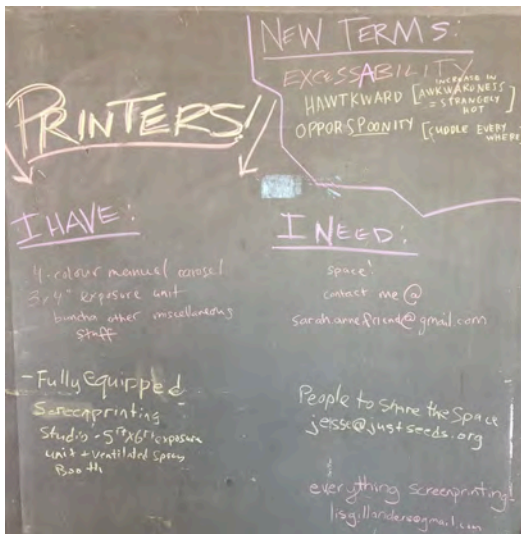 NEW TERMS:
EXCESSABILITY
HAWTKWARD [AWKWARDNESS
INCREASE IN
= STRANGELY
HOT]
OPPORSPOONITY [CUDDLE EVERY
WHERE]
PRINTERS!
I HAVE:
4-colour manual carousel
3x4" exposure unit
buncha other miscellaneous
stuff
- Fully Equipped
Screenprinting
Studio - 5ftx6ft exposure
unit + Ventilated Spray
Booth
I NEED:
space!
contact me @
sarahannefriend@gmail.com
People to Share the Space
jesse@justseeds.org
everything screenprinting!